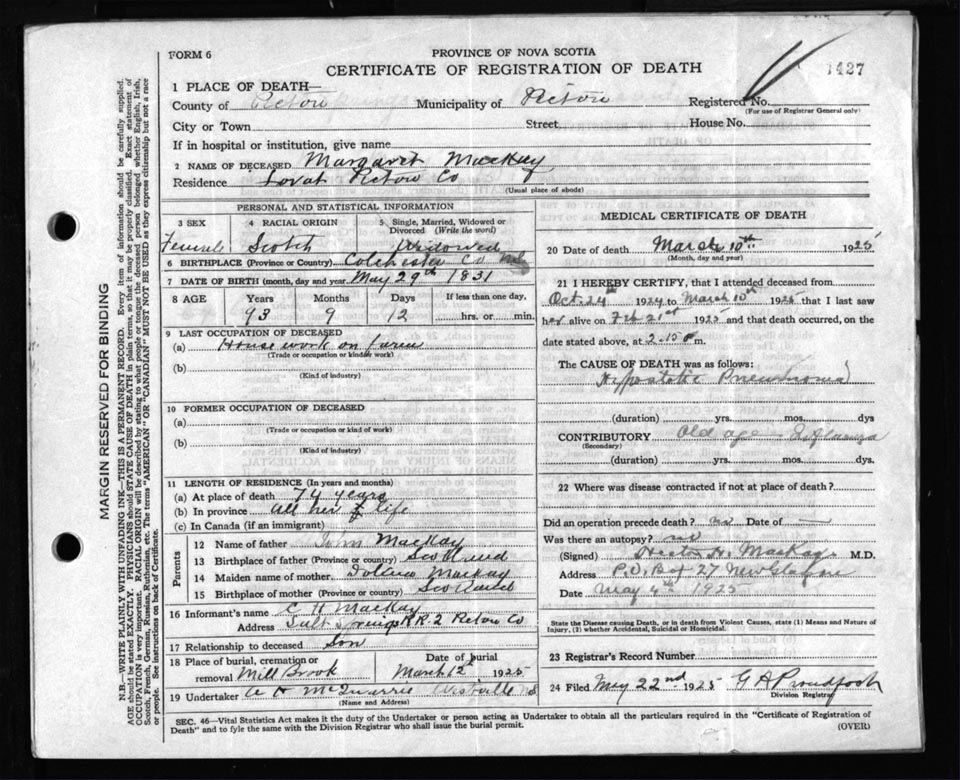 FORM 6
PROVINCE OF NOVA SCOTIA
CERTIFICATE OF REGISTRATION OF DEATH
1427
1 PLACE OF DEATH—
County of Pictou Municipality of Pictou Registered No.
(For use of Registrar General only)
City or Town Street House No.
If in hospital or institution, give name
2 NAME OF DECEASED Margaret MacKay
Residence Lovat Pictou Co
(Usual place of abode)
PERSONAL AND STATISTICAL INFORMATION
3 SEX 4 RACIAL ORIGIN 5 Single, Married, Widowed or Divorced (Write the word)
Female Scotch Widowed
6 BIRTHPLACE (Province or Country) Colchester Co N.S.
7 DATE OF BIRTH (month, day and year) May 29th 1831
8 AGE Years Months Days If less than one day,
93 9 12 hrs. or min.
9 LAST OCCUPATION OF DECEASED
(a) House work on farm
(Trade or occupation or kind of work)
(b)
(Kind of industry)
10 FORMER OCCUPATION OF DECEASED
(a)
(Trade or occupation or kind of work)
(b)
(Kind of industry)
11 LENGTH OF RESIDENCE (In years and months)
(a) At place of death 74 years
(b) In province all her life
(c) In Canada (if an immigrant)
Parents
12 Name of father John MacKay
13 Birthplace of father (Province or country) Scotland
14 Maiden name of mother MacKay
15 Birthplace of mother (Province or country) Scotland
16 Informant's name C H MacKay
Address Salt Springs R R-2 Pictou Co
17 Relationship to deceased Son
18 Place of burial, cremation or removal Mill Brook Date of burial March 12 1925
19 Undertaker A H McQuarrie Westville N.S.
(Name and Address)
MEDICAL CERTIFICATE OF DEATH
20 Date of death March 10th 1925
(Month, day and year)
21 I HEREBY CERTIFY, that I attended deceased from
Oct. 24th 1924 to March 10th 1925 that I last saw
her alive on Feb 21st 1925 and that death occurred, on
date stated above, at 2.15 m.
The CAUSE OF DEATH was as follows:
Hypostatic Pneumonia
(duration) yrs. mos. dys
CONTRIBUTORY Old age - Influenza
(Secondary)
(duration) yrs. mos. dys.
22 Where was disease contracted if not at place of death?
Did an operation precede death? no Date of —
Was there an autopsy? no
(Signed) Hector H. MacKay M.D.
Address P.O. Box 27 New Glasgow
Date May 4th 1925
State the Disease causing Death, or in death from Violent Causes, state (1) Means and Nature of Injury, (2) whether Accidental, Suicidal or Homicidal.
23 Registrar's Record Number
24 Filed May 22nd 1925 G H Proudfoot
Division Registrar
SEC. 46—Vital Statistics Act makes it the duty of the Undertaker or person acting as Undertaker to obtain all the particulars required in the "Certificate of Registration of
Death" and to fyle the same with the Division Registrar who shall issue the burial permit. (OVER)
MARGIN RESERVED FOR BINDING
N.B.—WRITE PLAINLY WITH UNFADING INK—THIS IS A PERMANENT RECORD. Every item of information should be carefully supplied.
AGE should be stated EXACTLY. PHYSICIANS should STATE CAUSE OF DEATH in plain terms, so that it may be properly classified. Exact statement of
OCCUPATION is very important. RACIAL ORIGIN will be described by stating to what people or tongue the deceased person belonged whether English, Irish,
Scotch, French, German, Russian, Ruthenian, etc. The terms "AMERICAN" OR "CANADIAN" MUST NOT BE USED as they express citizenship but not a race
or people. See instructions on back of Certificate.